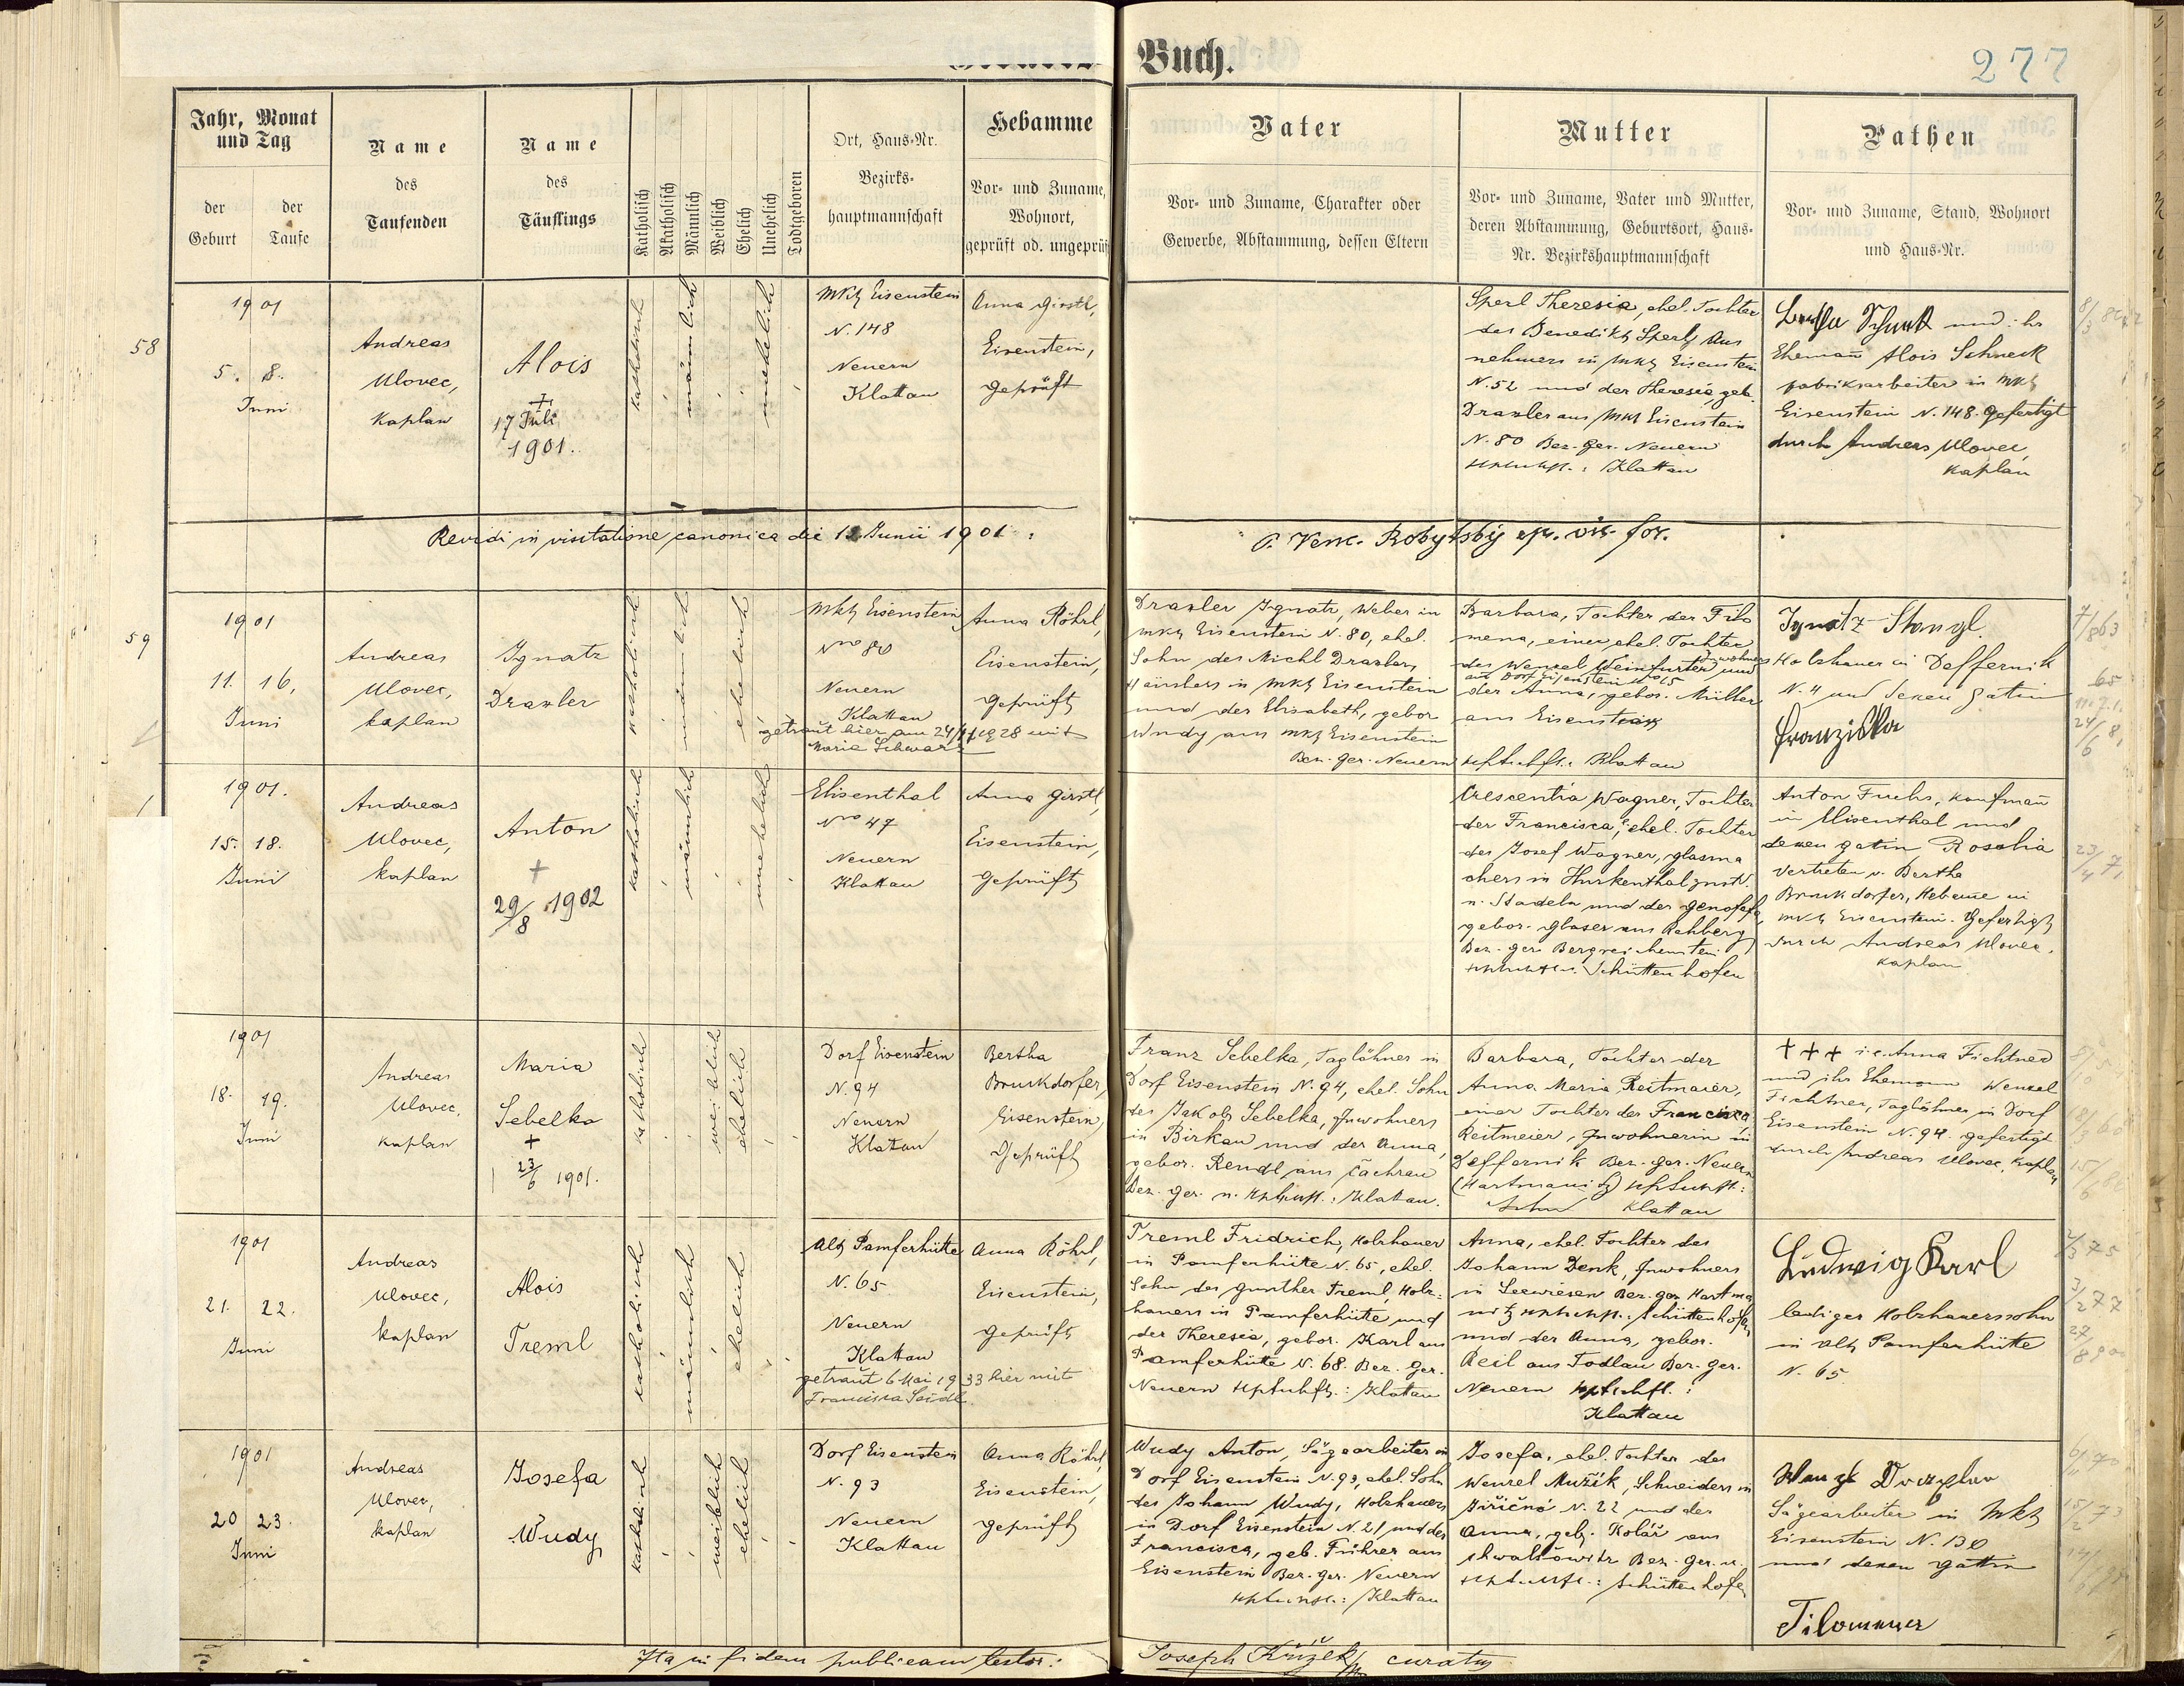 Buch.
277
Jahr, Monat
und Tag
der
Geburt
der
Taufe
Name
des
Taufenden
Name
des
Täuflings
Katholisch
Akatholisch
Männlich
Weiblich
Ehelich
Unehelich
Todtgeboren
Ort, Haus-Nr.
Bezirks-
hauptmannschaft
Hebamme
Vor- und Zuname,
Wohnort,
geprüft od. ungeprüft
Vater
Vor- und Zuname, Charakter oder
Gewerbe, Abstammung, dessen Eltern
Mutter
Vor- und Zuname, Vater und Mutter,
deren Abstammung, Geburtsort, Haus-
Nr. Bezirkshauptmannschaft
Pathen
Vor- und Zuname, Stand, Wohnort
und Haus-Nr.
58
1901
5. 8.
Juni
Andreas
Ulovec,
Kaplan
Alois
†
17 Juli
1901.
katholisch
männlich
unehelich
Mkt Eisenstein
N. 148
Neuern
Klattau
Anna Girstl,
Eisenstein,
Geprüft
Sperl Theresia, ehel. Tochter
des Benedikt Sperl, Aus
nehmers in Mkt Eisenstein
N. 52 und der Theresia, geb.
Draxler aus Mkt Eisenstein
N. 80 Bez. Ger. Neuern
Klattau
Schneck und ihr
Ehemann Alois Schneck
Fabriksarbeiter in Mkt
Eisenstein N. 148. Gefertigt
durch Andreas Ulovec,
Kaplan
Revidi in visitatione canonica die 13 Junii 1901:
59
1901
11. 16.
Juni
Andreas
Ulovec,
kaplan
Ignatz
Draxler
katholisch
männlich
ehelich
Mkt Eisenstein
Nro 80
Neuern
Klattau
getraut hier am 24/11 1928 mit
Maria Schwarz
Anna Röhrl,
Eisenstein,
Geprüft
Draxler Ignatz, Weber in
Mkt Eisenstein N. 80, ehel.
Sohn des Michl Draxler,
Häuslers in Mkt Eisenstein
und der Elisabeth, gebor
Wudy aus Mkt Eisenstein
Bez. Ger. Neuern
Barbara, Tochter der Filo
mena, einer ehel. Tochter
des Wenzel Weinfurter Inwohners und
aus Dorf Eisenstein No 15
der Anna, gebor. Müller
aus Eisenstein
Klattau
Ignatz Stangl.
Holzhauer in Deffernik
N. 4 und dessen Gatin
Franziska
1901.
15. 18.
Juni
Andreas
Ulovec,
kaplan
Anton
+
29/8 1902
katholisch
männlich
unehelich
Elisenthal
Nro 47
Neuern
Klattau
Anna Girstl,
Eisenstein,
Geprüft
Crescentia Wagner, Tochter
der Francisca, ehel. Tochter
des Josef Wagner, Glasma
chers in Hurkenthal
n. Stadeln und der Genofefa,
gebor. Glaser aus Rehberg
Bez. Ger. Bergreichenstein
Schüttenhofen
Anton Fuchs, Kaufmann
in Elisenthal und
dessen Gatin Rosalia
vertreten v. Bertha
Bruckdorfer, Hebame in
Mkt Eisenstein. Gefertigt
durch Andreas Ulovec,
Kaplan
1901
18. 19.
Juni
Andreas
Ulovec,
Kaplan
Maria
Sebelka
+
23/6 1901.
katholisch
weiblich
ehelich
Dorf Eisenstein
N. 94
Neuern
Klattau
Bertha
Bruckdorfer,
Eisenstein,
Geprüft
Franz Sebelka, Taglöhner in
Dorf Eisenstein N. 94, ehel. Sohn
des Jakob Sebelka, Inwohners
in Birkau und der Anna,
gebor. Rendl aus Čachrau
Bez. Ger. n. : Klattau.
Barbara, Tochter der
Anna Maria Reitmaier,
einer Tochter der Francisca
Reitmeier, Inwohnerin in
Deffernik Bez. Ger. Neuern
(Hartmanitz)
Klattau
+++ i.e. Anna Fichtner
und ihr Ehemann Wenzel
Fichtner, Taglöhner in Dorf
Eisenstein N. 94. gefertigt
durch Andreas Ulovec, Kaplan
1901
21. 22.
Juni
Andreas
Ulovec,
kaplan
Alois
Treml
katholisch
männlich
ehelich
Alt Pamferhütte
N. 65
Neuern
Klattau
getraut 6 Mai 1933 hier mit
Francisca Seidl
Anna Röhrl,
Eisenstein,
Geprüft
Treml Fridrich, Holzhauer
in Pamferhütte N. 65, ehel.
Sohn des Gunther Treml, Holz-
hauers in Pamferhütte und
der Theresia, gebor. Karl aus
Pamferhütte N. 68. Bez. Ger.
Neuern : Klattau
Anna, ehel. Tochter des
Johann Denk, Inwohners
in Seewiesen Bez. Ger. Hartma
nitz Schüttenhofen
und der Anna, gebor.
Beil aus Todlau Bez. Ger.
Neuern :
Klattau
Ludwig Karl
lediger Holzhauerssohn
in Alt Pamferhütte
N. 65
1901
20 23.
Juni
Andreas
Ulovec,
kaplan
Josefa
Wudy
katholisch
weiblich
ehelich
Dorf Eisenstein
N. 93
Neuern
Klattau
Anna Röhrl,
Eisenstein,
Geprüft
Wudy Anton, Sägearbeiter in
Dorf Eisenstein N. 93, ehel. Sohn
des Johann Wudy, Holzhauers
in Dorf Eisenstein N. 21 und der
Francisca, geb. Führer aus
Eisenstein Bez. Ger. Neuern
: Klattau
Josefa, ehel. Tochter des
Wenzel Mužik, Schneiders in
Jiřičná N. 22 und der
Anna, geb. Kolář aus
Bez. Ger. u.
: Schüttenhofen
Sägearbeiter in Mkt
Eisenstein N. 130
und dessen Gattin
Filomena
Ita in fidem publicam testor:
Joseph Křížek curatus